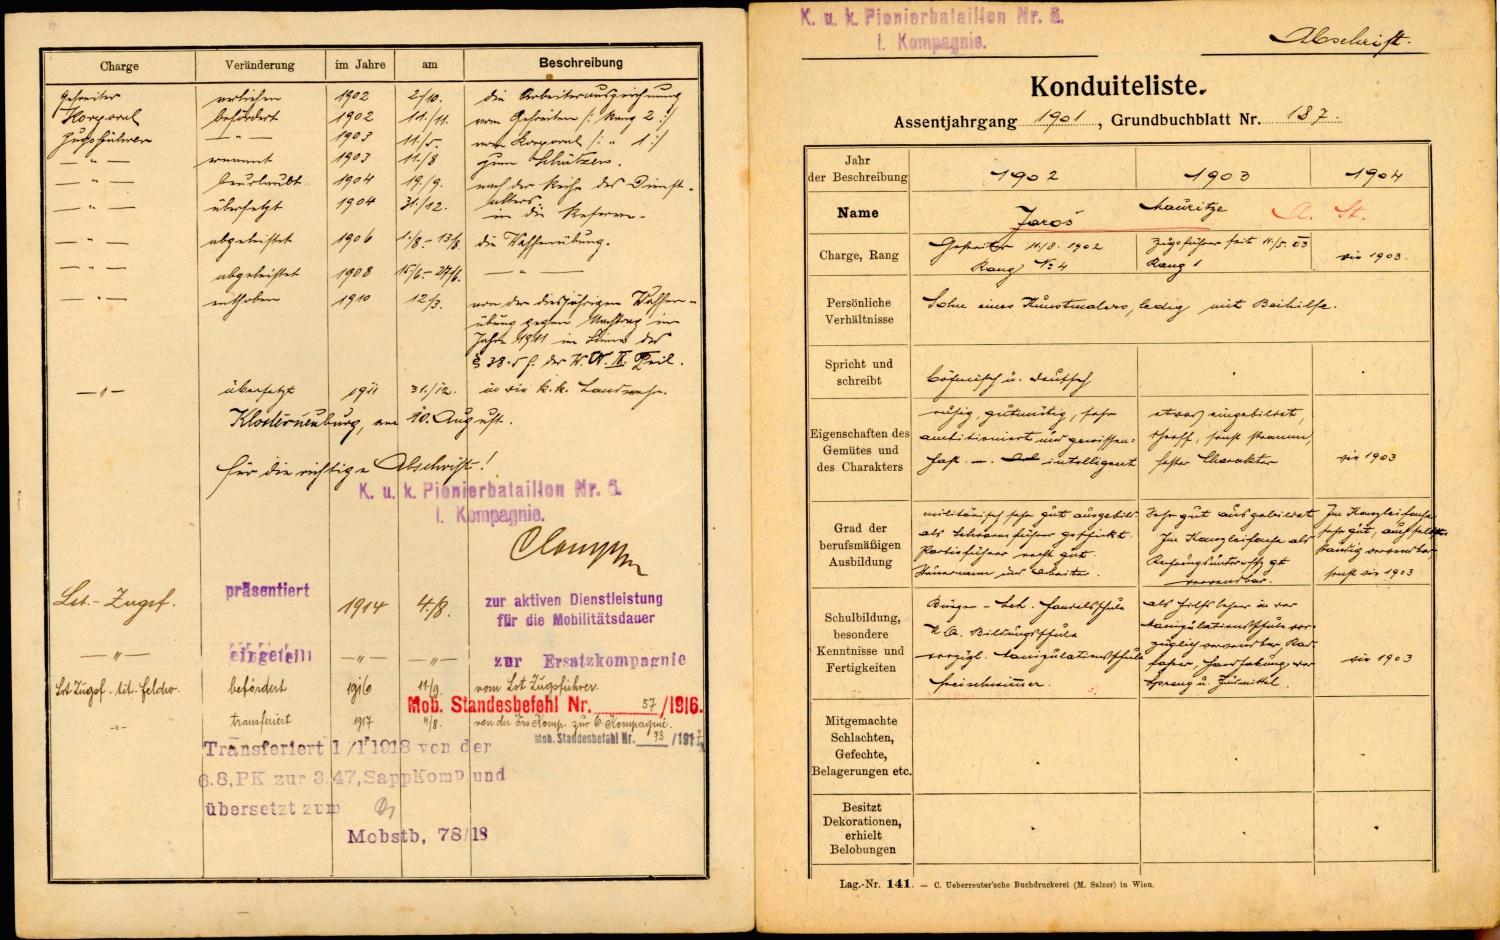 Charge Veränderung im Jahre am Beschreibung
Gefreiter verliehen 1902 2/10. die Arbeiterauszeichnung
Korporal befördert 1902 11./11. vom Gefreiten /: Rang 2 :/
Zugsführer — " — 1903 11/5. vom Korporal /: " 1 :/
— " — ernannt 1903 11./8 zum Schützen.
— " — beurlaubt 1904 19./9. nach der Reihe des Dienst-
alters.
— " — übersetzt 1904 31./12. in die Reserve.
— " — abgeleistet 1906 1./8.-13/8. die Waffenübung.
— " — abgeleistet 1908 15/6.-27/6. — " —
— " — enthoben 1910 12/3. von der diesjährigen Waffen-
übung gegen Nachtrag im
Jahre 1911 im Sinne des
§ 38. der W. V. II. Teil.
— " — übersetzt 1911 31./12. in die k.k. Landwehr.
Klosterneuburg, am 10. August.
für die richtige Abschrift!
K. u. k. Pionierbataillon Nr. 6.
1. Kompagnie.
Lst.-Zugsf. präsentiert 1914 4./8. zur aktiven Dienstleistung
für die Mobilitätsdauer
— " — eingeteilt — " — — " — zur Ersatzkompagnie
Lst Zugsf. tit. Feldw. befördert 1916 11/9. vom Lst Zugsführer.
Mob. Standesbefehl Nr. 57 /1916.
— " — transferiert 1917 /8. von der Ers Komp. zur 6. Kompagnie.
Mob. Standesbefehl Nr. 73 /1917
Transferiert 1/1 1918 von der
6.8,PK zur 3.47,SappKomp und
übersetzt zum
Mobstb, 78/18
K. u. k. Pionierbataillon Nr. 6.
1. Kompagnie.
Abschrift.
Konduiteliste.
Assentjahrgang 1901, Grundbuchblatt Nr. 187.
Jahr
der Beschreibung 1902 1903 1904
Name Jaroš Mauritze A. St.
Charge, Rang Gefreiter 11/8. 1902 Zugsführer seit 11/5. 03 wie 1903.
Rang No 4 Rang 1
Persönliche
Verhältnisse Sohn eines Kunstmalers, ledig mit Beihilfe.
Spricht und
schreibt Böhmisch u. deutsch
Eigenschaften des
Gemütes und
des Charakters
ruhig, gutmütig, sehr
ambitioniert und gewissen-
haft. intelligent
etwas eingebildet,
schroff, sonst stramm,
fester Charakter
wie 1903
Grad der
berufsmäßigen
Ausbildung
militärisch sehr gut ausgebild.
als Schwarmführer geschickt.
Partieführer recht gut.
Steuermann und Arbeiter.
Sehr gut ausgebildet
Im Kanzleifache als
Rechnungsunteroffz gt
verwendbar.
Im Kanzleifache
sehr gut, auch selbst-
ständig verwendbar
sonst wie 1903
Schulbildung,
besondere
Kenntnisse und
Fertigkeiten
Bürger- Handelsschule
U. O. Bildungsschule
vorzügl. Manipulationsschule
Freischwimmer.
als Hilfslehrer in der
Manipulationsschule vor-
züglich verwendbar, Rad-
fahrer, Handhabung der
Spreng u. Zündmittel.
wie 1903
Mitgemachte
Schlachten,
Gefechte,
Belagerungen etc.
Besitzt
Dekorationen,
erhielt
Belobungen
Lag.-Nr. 141. — C. Ueberreuter'sche Buchdruckerei (M. Salzer) in Wien.